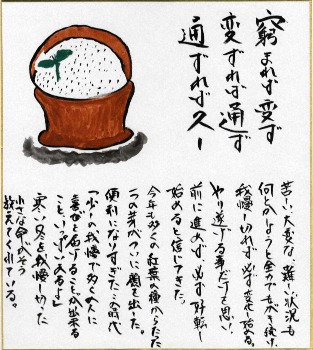 窮まれば変ず
変ずれば通ず
通ずれば久し
苦しい大変な、難しい状況も
何とかしようと全力でもがき続け、
我慢し切れば必ず変化し始める。
やり遂げる事だけを思い、
前に進めば必ず好転し
始めると信じてきた。
今年も多くの紅葉の種からたった
一つの芽がついに顔を出した。
便利になりすぎたこの時代
「少しの我慢で多くの人に
喜びを届けることが出来る
こと、いっぱいあるよ」
寒い冬を我慢し切った
小さな命がそう
教えてくれている。